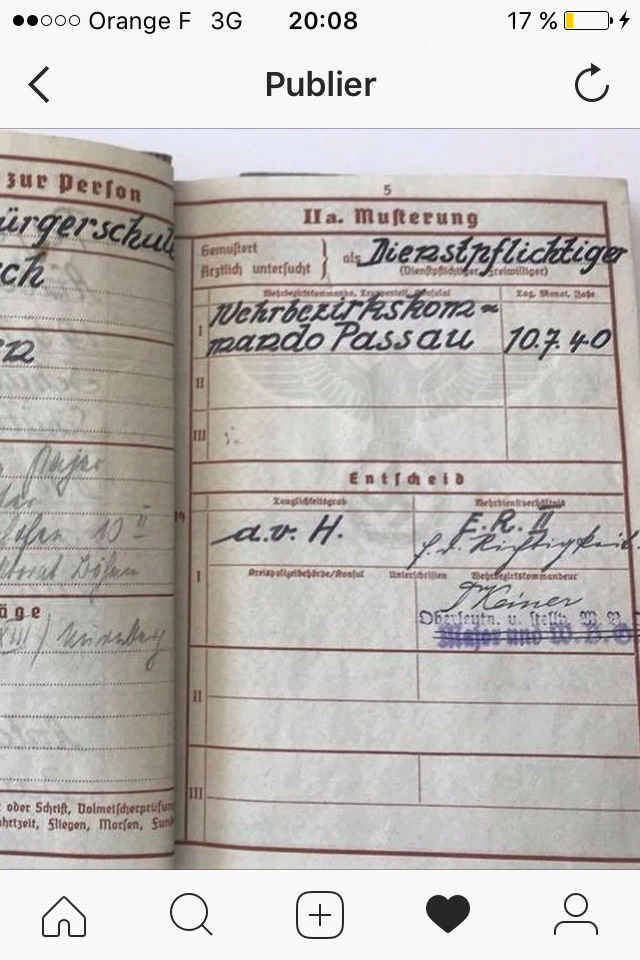 Orange F 3G 20:08 17 %
Publier
zur Person
ürgerschule
ch
5
IIa. Musterung
Gemustert
Ärztlich untersucht } als Dienstpflichtiger
(Dienstpflichtiger, Freiwilliger)
Wehrbezirkskommando, Truppenteil, Konsulat Tag, Monat, Jahr
I Wehrbezirkskom-
mando Passau 10.7.40
II
III
Entscheid
14 Tauglichkeitsgrad Wehrdienstverhältnis
I a.v. H. E.R. II
f. d. Richtigkeit
Kreispolizeibehörde/Konsul Unterschriften Wehrbezirkskommandeur
Oberleutn. u. stellv. W. B.
Major und W. B. O
II
III
10 II
äge
XIII / Nürnberg
oder Schrift, Dolmetscherprüfun
hrtzeit, Fliegen, Morsen, Funk